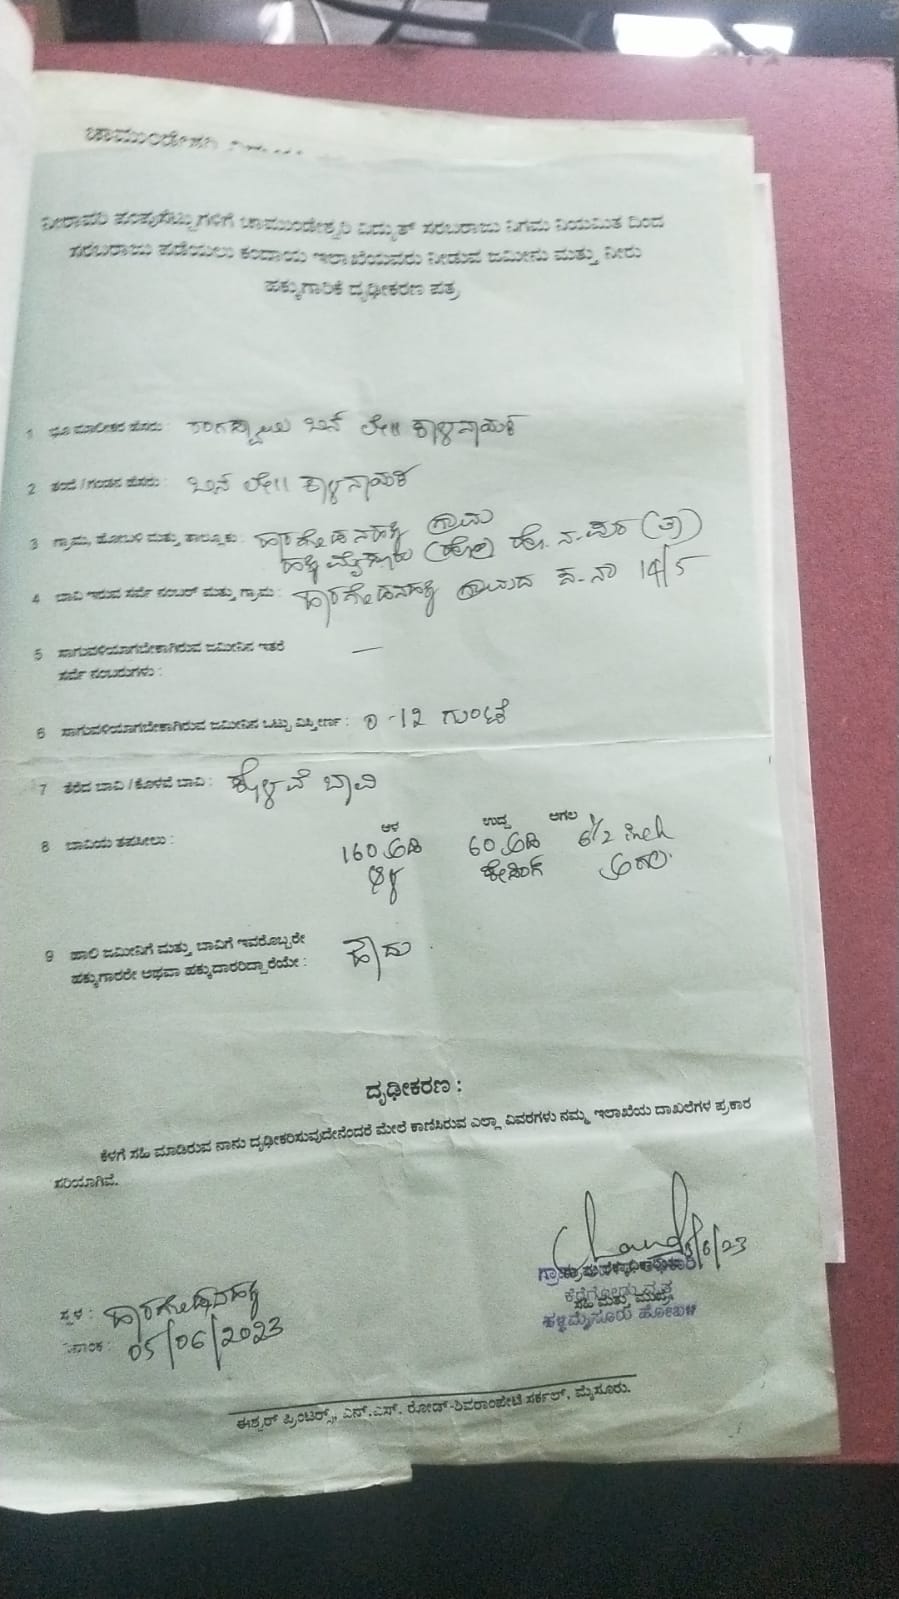 ಚಾಮುಂಡೇಶ್ವರಿ
ನೀರಾವರಿ ಪಂಪುಸೆಟ್ಟುಗಳಿಗೆ ಚಾಮುಂಡೇಶ್ವರಿ ವಿದ್ಯುತ್ ಸರಬರಾಜು ನಿಗಮ ನಿಯಮಿತ ದಿಂದ
ಸರಬರಾಜು ಪಡೆಯಲು ಕಂದಾಯ ಇಲಾಖೆಯವರು ನೀಡುವ ಜಮೀನು ಮತ್ತು ನೀರು
ಹಕ್ಕುಗಾರಿಕೆ ದೃಢೀಕರಣ ಪತ್ರ
1 ಭೂ ಮಾಲೀಕರ ಹೆಸರು : ರಂಗಸ್ವಾಮಿ ಬಿನ್ ಲೇ|| ಕಾಳನಾಯಕ
2 ತಂದೆ / ಗಂಡನ ಹೆಸರು : ಬಿನ್ ಲೇ|| ಕಾಳನಾಯಕ
3 ಗ್ರಾಮ, ಹೋಬಳಿ ಮತ್ತು ತಾಲ್ಲೂಕು : ಹಾರಗೋಡನಹಳ್ಳಿ ಗ್ರಾಮ
ಹಳ್ಳಿಮೈಸೂರು (ಹೋ) ಹೊ. ನ. ಪುರ (ತಾ)
4 ಬಾವಿ ಇರುವ ಸರ್ವೆ ನಂಬರ್ ಮತ್ತು ಗ್ರಾಮ : ಹಾರಗೋಡನಹಳ್ಳಿ ಗ್ರಾಮದ ಸ. ನಂ 14/5
5 ಸಾಗುವಳಿಯಾಗಬೇಕಾಗಿರುವ ಜಮೀನಿನ ಇತರೆ —
ಸರ್ವೆ ನಂಬರುಗಳು :
6 ಸಾಗುವಳಿಯಾಗಬೇಕಾಗಿರುವ ಜಮೀನಿನ ಒಟ್ಟು ವಿಸ್ತೀರ್ಣ : 0 -12 ಗುಂಟೆ
7 ತೆರೆದ ಬಾವಿ / ಕೊಳವೆ ಬಾವಿ : ಕೊಳವೆ ಬಾವಿ
ಆಳ ಉದ್ದ ಅಗಲ
8 ಬಾವಿಯ ತಪಸೀಲು : 160 ಅಡಿ 60 ಅಡಿ 6 1/2 inch
ಆಳ ಕೇಸಿಂಗ್ ಅಗಲ
9 ಹಾಲಿ ಜಮೀನಿಗೆ ಮತ್ತು ಬಾವಿಗೆ ಇವರೊಬ್ಬರೇ ಹೌದು
ಹಕ್ಕುಗಾರರೇ ಅಥವಾ ಹಕ್ಕುದಾರರಿದ್ದಾರೆಯೇ :
ದೃಢೀಕರಣ :
ಕೆಳಗೆ ಸಹಿ ಮಾಡಿರುವ ನಾನು ದೃಢೀಕರಿಸುವುದೇನೆಂದರೆ ಮೇಲೆ ಕಾಣಿಸಿರುವ ಎಲ್ಲಾ ವಿವರಗಳು ನಮ್ಮ ಇಲಾಖೆಯ ದಾಖಲೆಗಳ ಪ್ರಕಾರ
ಸರಿಯಾಗಿವೆ.
5/6/23
ಗ್ರಾಮ
ಸಹಿ ಮತ್ತು ಮುದ್ರೆ
ಹಳ್ಳಿಮೈಸೂರು ಹೋಬಳಿ
ಸ್ಥಳ : ಹಾರಗೋಡನಹಳ್ಳಿ
ದಿನಾಂಕ : 05/06/2023
ಈಶ್ವರ್ ಪ್ರಿಂಟರ್ಸ್, ಎನ್.ಎಸ್. ರೋಡ್-ಶಿವರಾಂಪೇಟೆ ಸರ್ಕಲ್, ಮೈಸೂರು.